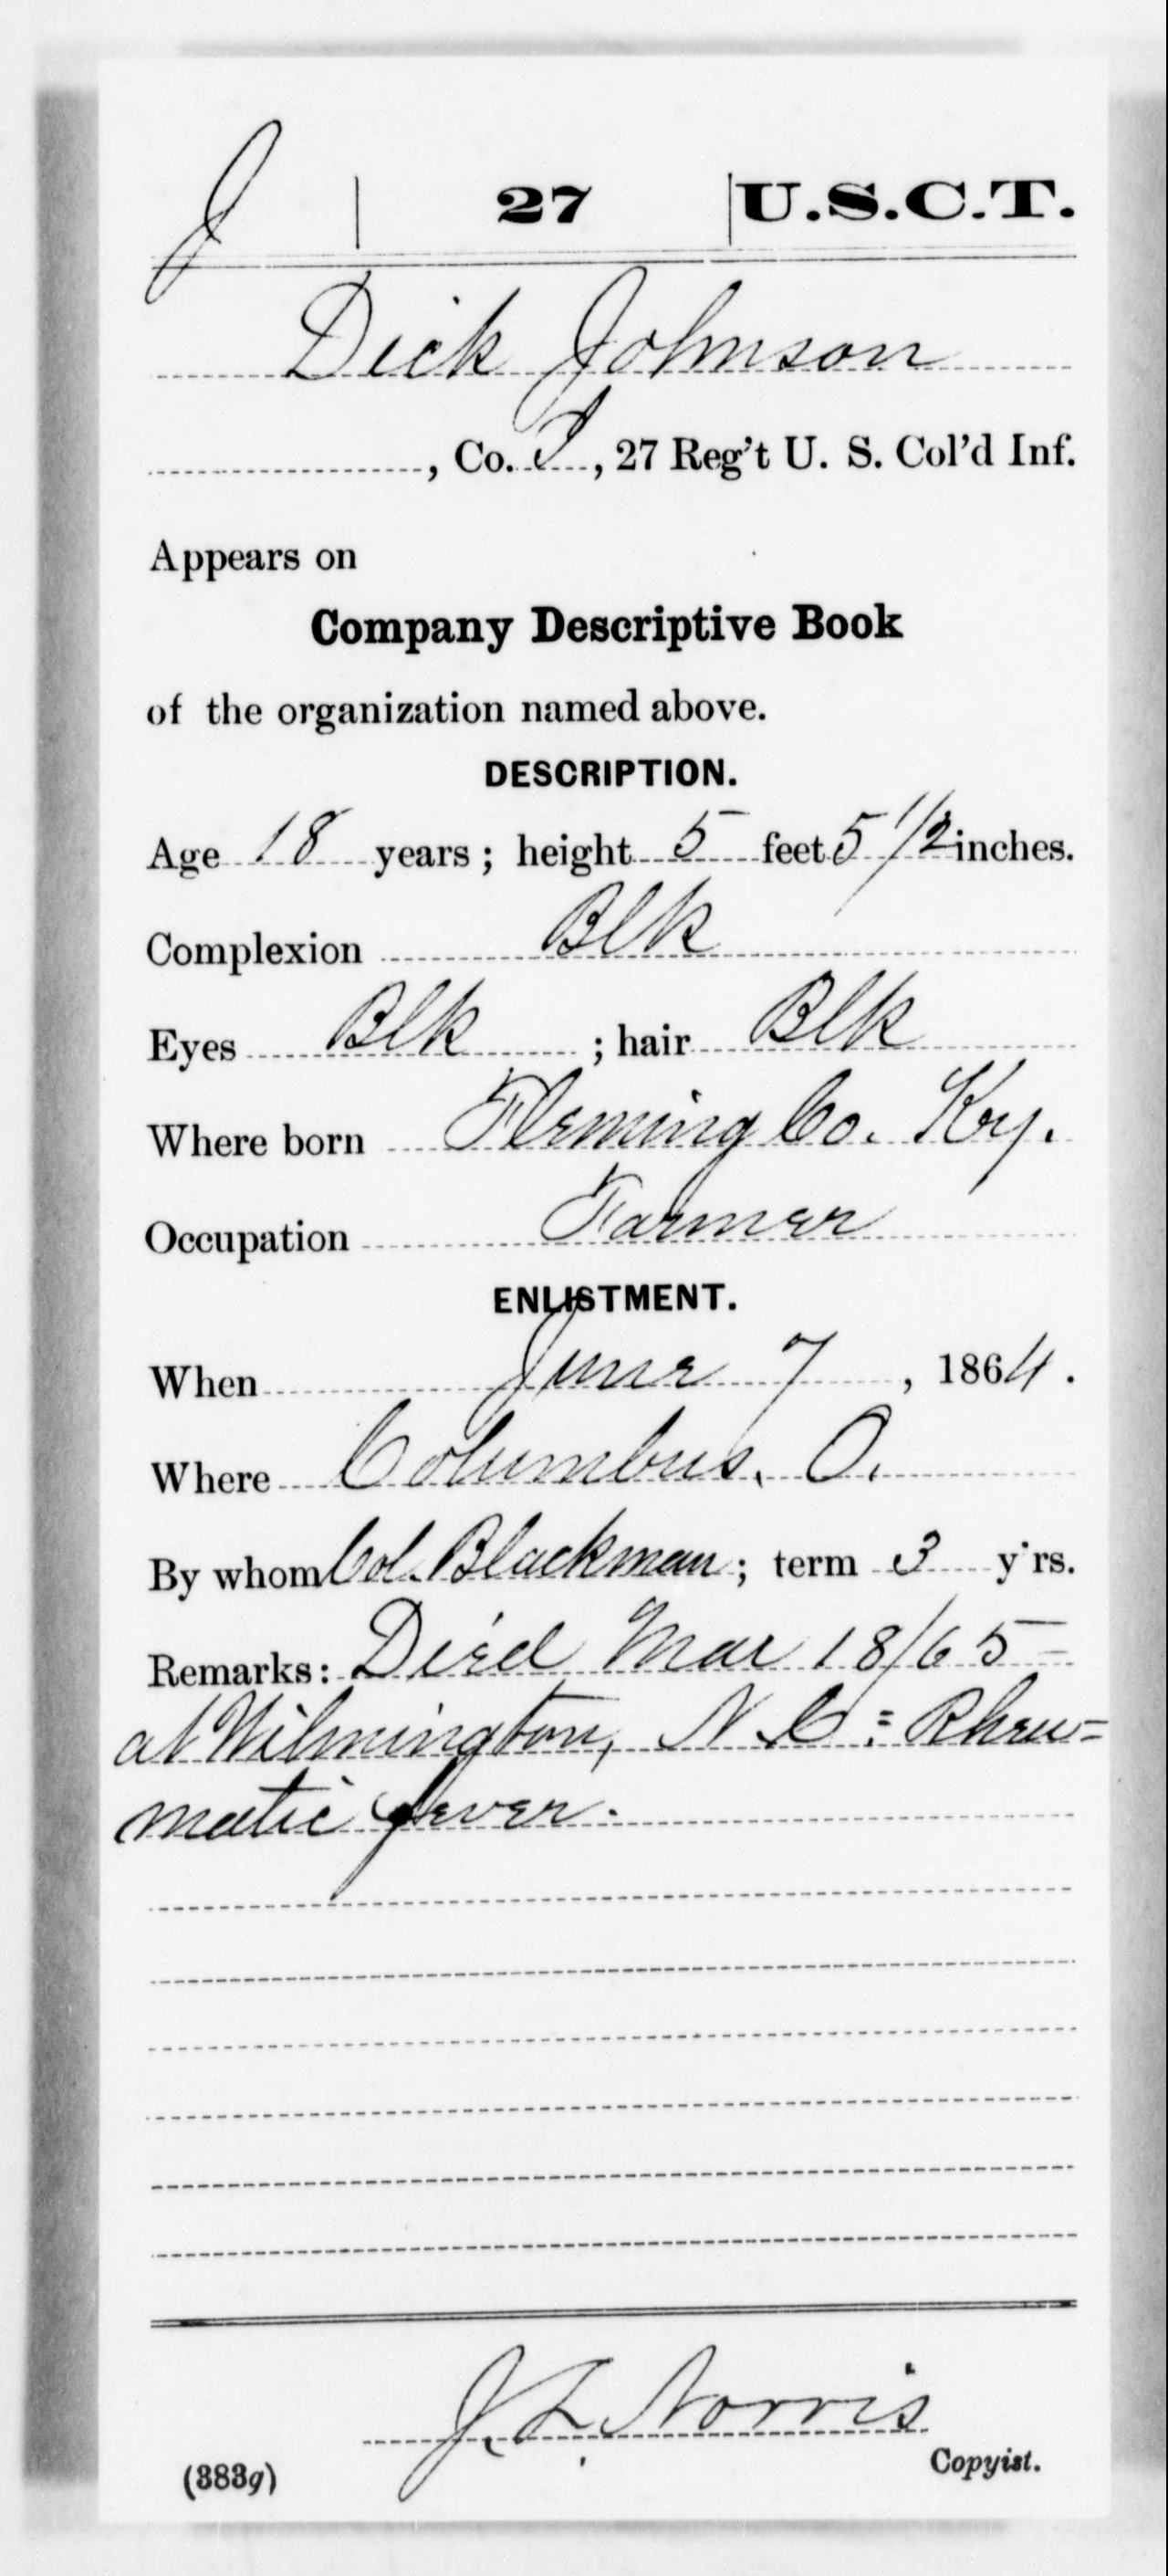 J | 27 | U.S.C.T.
Dick Johnson
, Co. I, 27 Reg't U. S. Col'd Inf.
Appears on
Company Descriptive Book
of the organization named above.
DESCRIPTION.
Age 18 years; height 5 feet 5 1/2 inches.
Complexion Blk
Eyes Blk ; hair Blk
Where born Fleming Co. Ky.
Occupation Farmer
ENLISTMENT.
When June 7, 1864.
Where Columbus, O.
By whom Col. Blackman; term 3 y'rs.
Remarks: Died Mar 18/65 =
at Wilmington, N.C.: Rheu=
matic fever.
J. L. Norris
Copyist.
(383g)